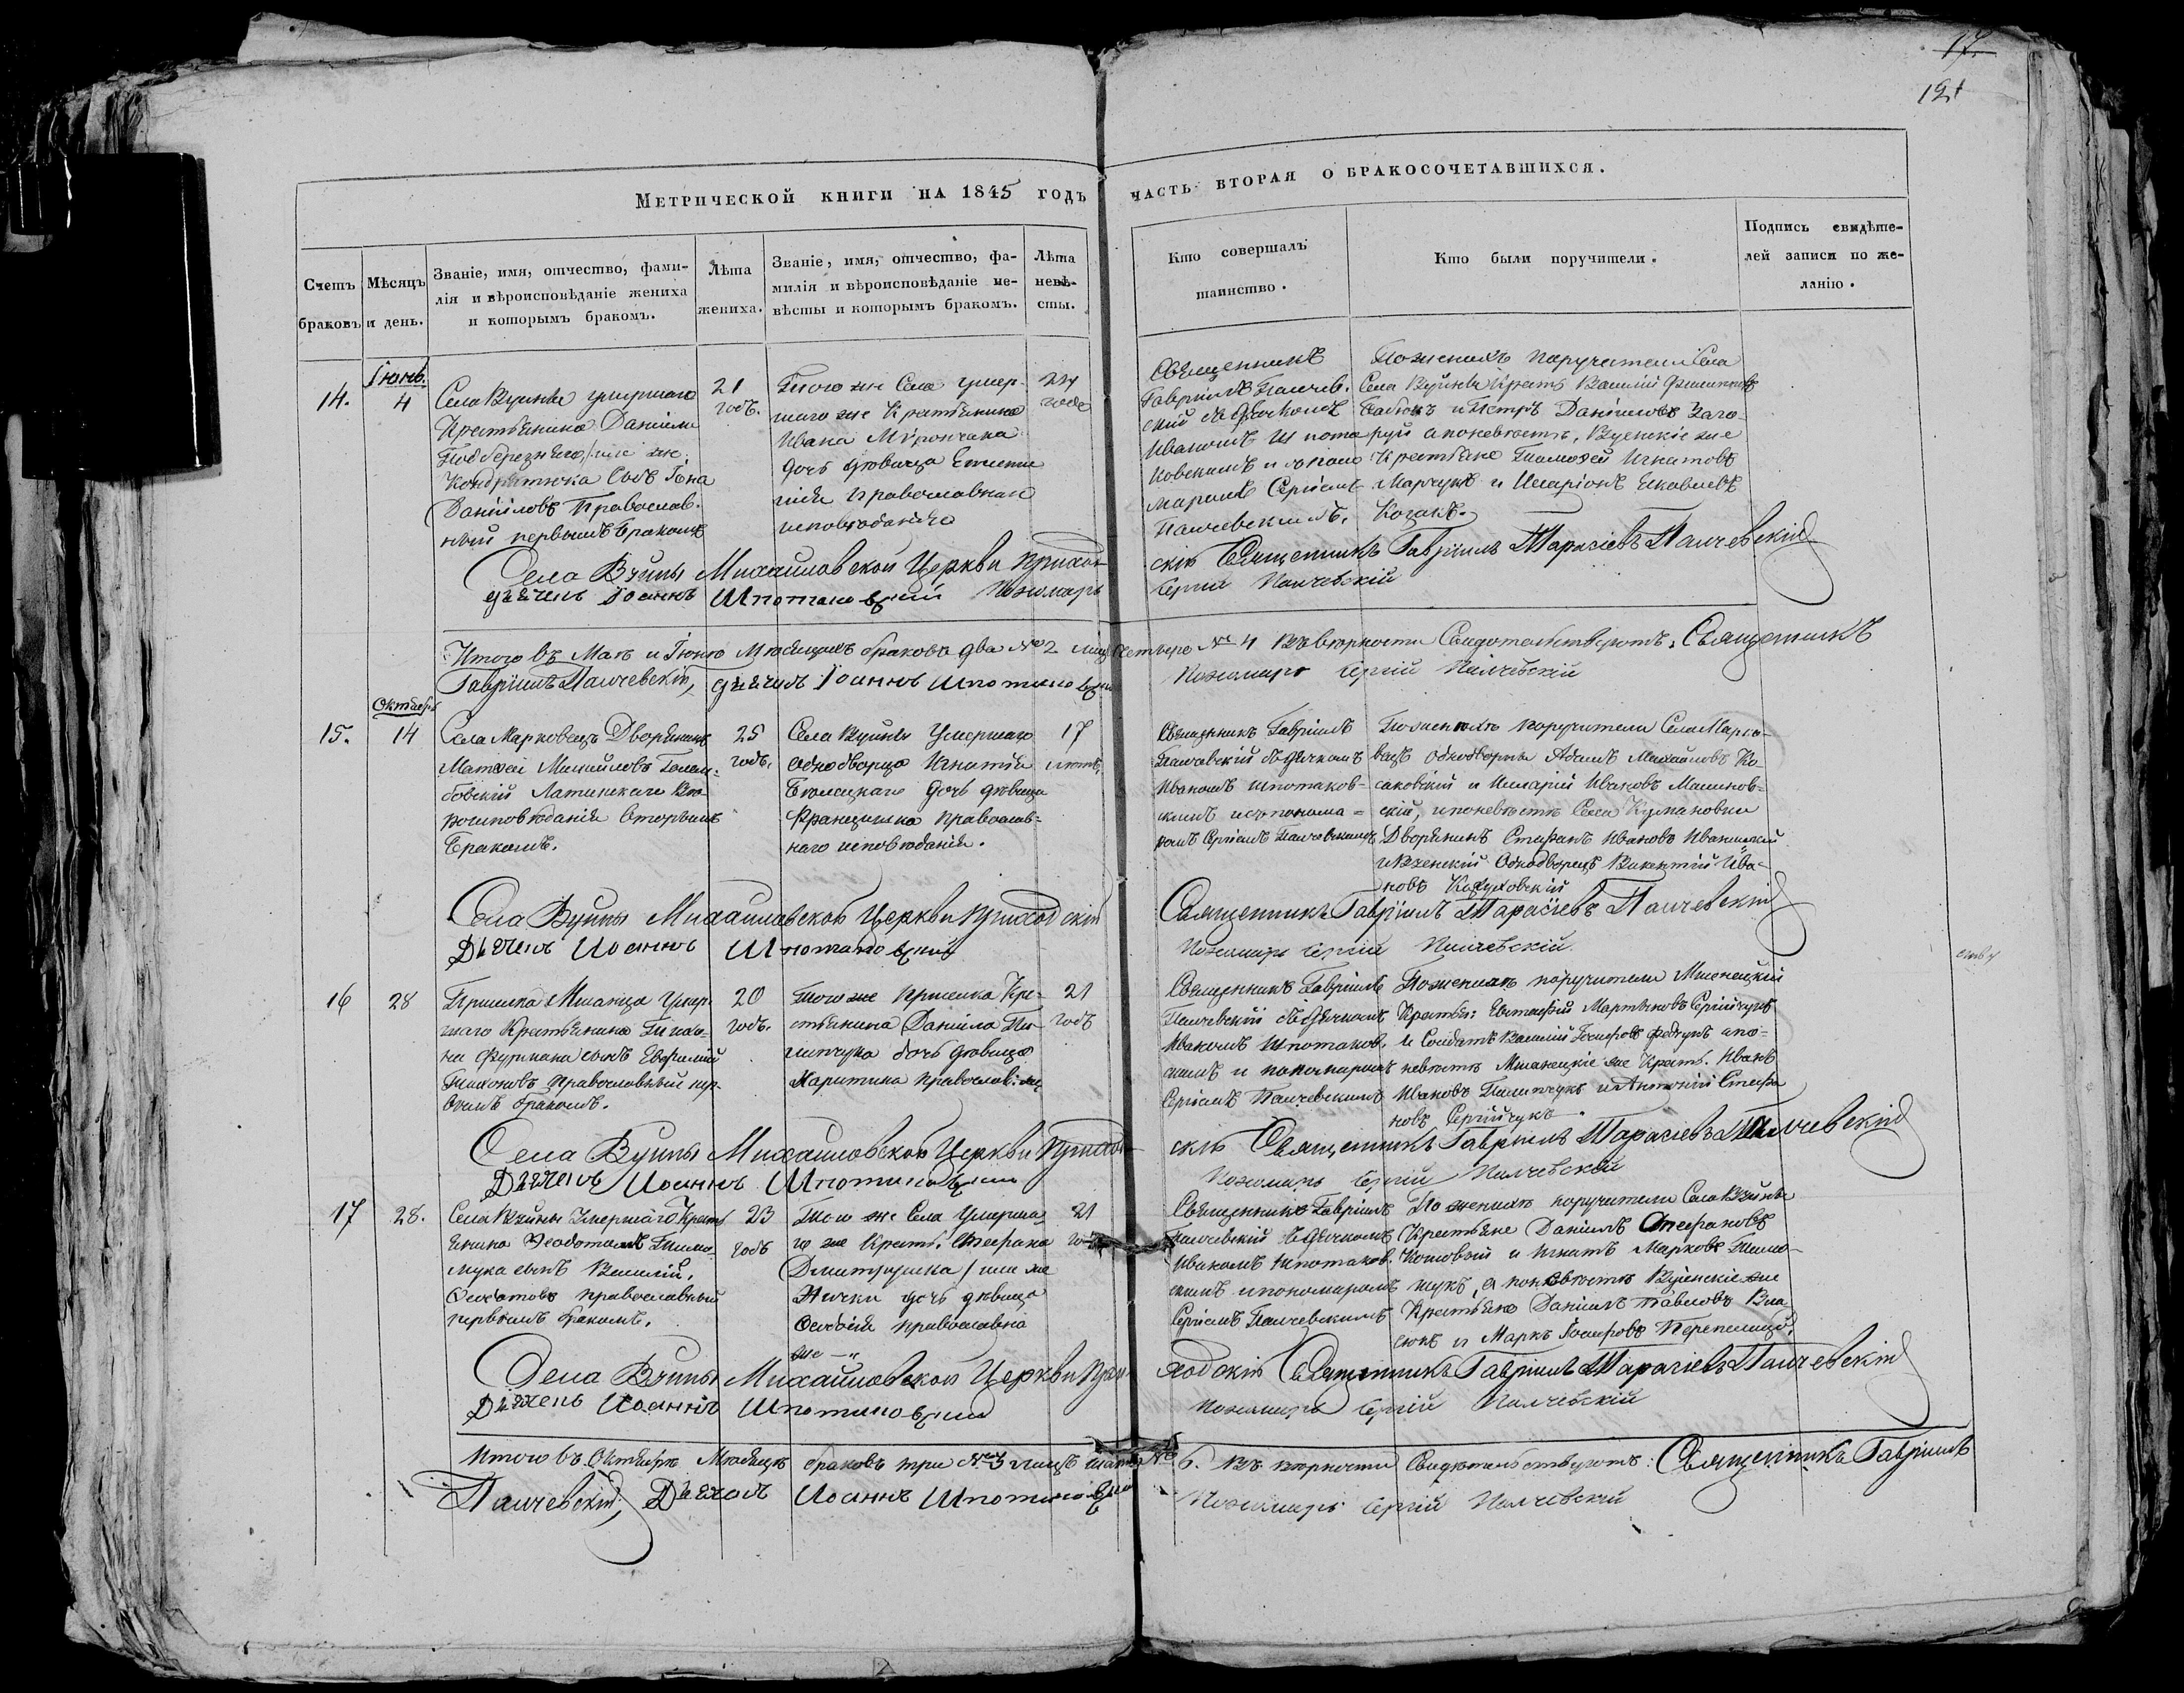 17.
121
Метрической книги на 1845 годъ
часть вторая о бракосочетавшихся.
Счетъ браковъ
Мѣсяцъ и день.
Званіе, имя, отчество, фами-
лія и вѣроисповѣданіе жениха
и которымъ бракомъ.
Лѣта
жениха.
Званіе, имя, отчество, фа-
милія и вѣроисповѣданіе не-
вѣсты и которымъ бракомъ.
Лѣта
невѣ-
сты.
Кто совершалъ
таинство.
Кто были поручители.
Подпись свидѣте-
лей записи по же-
ланію.
Іюнь.
14.
4
Села Вуйны умершаго
Крестьянина Даніила
Подберезняго, или же
Кондратюка сынъ
Даніиловъ Православ-
ный первымъ бракомъ
21
годъ.
Того же Села умер-
шаго же Крестьянина
Ивана Мірончика
дочь дѣвица
Православнаго
исповѣданія
года
Священникъ
Гавріилъ Палчев-
скій съ Дьячкомъ
Иваномъ Шпота-
ковскимъ и Поно-
маремъ Сергіемъ
Палчевскимъ.
По женихѣ поручители Села
Села Вуйны Крест. Василій
и Петръ Даніиловъ
а по невѣстѣ, Вуенскіе же
Крестьяне Тимофей Игнатовъ
Марчукъ и Иларіонъ Яковлевъ
Козакъ.
Села Вуйны Михайловской Церкви Приход-
скій Священникъ Гавріилъ Тарасіевъ Палчевскій
Дьячекъ Іоаннъ Шпотаковскій Пономарь
Сергій Палчевскій
Итого въ Маѣ и Іюнѣ Мѣсяцахъ браковъ два № 2 лицъ четыре № 4 Въ вѣрности Свидѣтельствуютъ: Священникъ
Гавріилъ Палчевскій, Дьячекъ Іоаннъ Шпотаковскій
Пономарь Сергій Палчевскій
Октябрь
15.
14
Села Марковецъ Дворянинъ
Матѳей Михайловъ
Латинскаго Вѣ-
роисповѣданія вторымъ
бракомъ.
25
годъ.
Села Вуйны Умершаго
однодворца Игнатія
дочь дѣвица
Францишка православ-
наго исповѣданія.
17
лѣтъ.
Священникъ Гавріилъ
Палчевскій съ Дьячкомъ
Иваномъ Шпотаков-
скимъ и съ понома-
ремъ Сергіемъ Палчевскимъ
По женихѣ поручители Села Марко-
вецъ однодворцы Адамъ Михайловъ Ко-
саковскій и Иларій Ивановъ Малинов-
скій, и по невѣстѣ Села Кумановки
Дворянинъ Стефанъ Ивановъ Иваницкій
и Вуенскій Однодворецъ Викентій Ива-
новъ Кожуховскій
Села Вуйны Михайловской Церкви Приходскій
Священникъ Гавріилъ Тарасіевъ Палчевскій
Дьячекъ Иоаннъ Шпотаковскій
Пономарь Сергій Палчевскій
16
28
Приселка Мшанца Умер-
шаго Крестьянина Тихо-
на Фурмана сынъ Евфимій
Тихоновъ православный пер-
вымъ бракомъ.
20
годъ.
Того же приселка Кре-
стьянина Даніила Пи-
липчука дочь дѣвица
Харитина православ. же
21
годъ
Священникъ Гавріилъ
Палчевскій съ Дьячкомъ
Иваномъ Шпотаков.
скимъ и пономаремъ
Сергіемъ Палчевскимъ
По женихѣ поручители Мшанецкій
Крестьян: Евстафій Мартыновъ Сергійчукъ
и Солдатъ Василій Іосифовъ Федчукъ а по
невѣстѣ Мшанецкіе же Крест. Иванъ
Ивановъ Пилипчукъ и Антоній Стефа
новъ Сергійчукъ.
Села Вуйны Михайловской Церкви Приход-
скій Священникъ Гавріилъ Тарасіевъ Палчевскій
Дьячекъ Иоаннъ Шпотаковскій
Пономарь Сергій Палчевскій
17
28.
Села Вуйны Умершаго Крест
янина Ѳеодота Тимо-
щука сынъ Василій,
Ѳеодотовъ православный
первымъ бракомъ.
23
годъ
Того же Села Умерша
го же Крест. Стефана
Дмитришина / или же
дочь дѣвица
православна
же
21
годъ
Священникъ Гавріилъ
Палчевскій съ Дьячкомъ
Иваномъ Шпотаков.
скимъ и пономаремъ
Сергіемъ Палчевскимъ
По женихѣ поручители Села Вуйны
Крестьяне Даніилъ Стефановъ
Кошовый и Игнатъ Марковъ Тимо-
щукъ, а по невѣстѣ Вуенскіе же
Крестьяне Даніилъ Павловъ Вла-
сюкъ и Маркъ Іосифовъ Перепелица.
Села Вуйны Михайловской Церкви При-
ходскій Священникъ Гавріилъ Тарасіевъ Палчевскій
Дьячекъ Иоаннъ Шпотаковскій
Пономарь Сергій Палчевскій
Итого въ Октябрѣ Мѣсяцѣ браковъ три № 3 лицъ шесть № 6. Въ вѣрности Свидѣтельствуютъ: Священникъ Гавріилъ
Палчевскій, Дьячекъ Иоаннъ Шпотаковскій
Пономарь Сергій Палчевскій